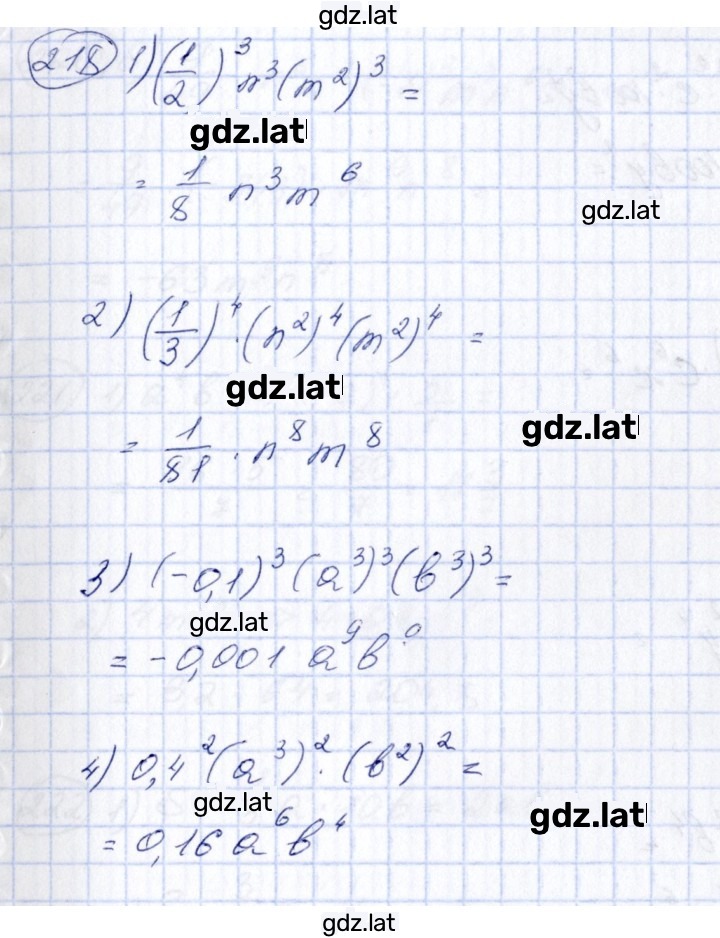 gdz.lat
218 1) (1/2)³ n³ (m²)³ =
gdz.lat
= 1/8 n³ m⁶
gdz.lat
2) (1/3)⁴ · (n²)⁴ (m²)⁴ =
gdz.lat
gdz.lat
= 1/81 · n⁸ m⁸
3) (-0,1)³ (a³)³ (b³)³ =
gdz.lat
= -0,001 a⁹ b
4) 0,4² (a³)² · (b²)² =
gdz.lat
gdz.lat
= 0,16 a⁶ b⁴
gdz.lat